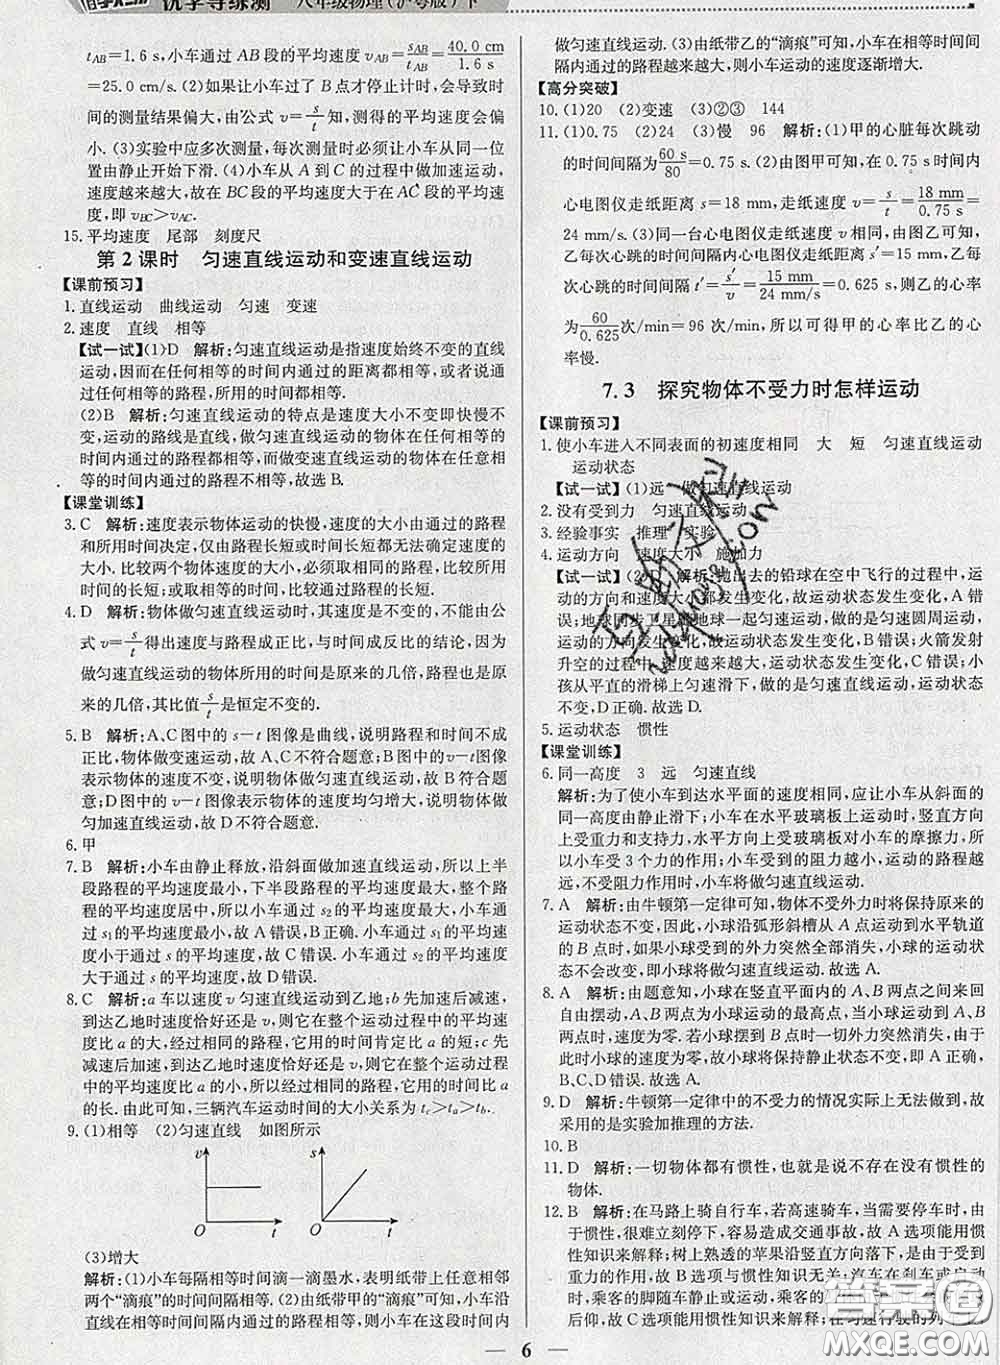 优学导练测 八年级物理(沪粤版)下
t_AB=1.6 s,小车通过 AB 段的平均速度 v_AB=s_AB/t_AB=40.0 cm/1.6 s
=25.0 cm/s. (2)如果让小车过了 B 点才停止计时,会导致时
间的测量结果偏大,由公式 v=s/t知,测得的平均速度会偏
小. (3)实验中应多次测量,每次测量时必须让小车从同一位
置由静止开始下滑. (4)小车从 A 到 C 的过程中做加速运动,
速度越来越大,故在 BC段的平均速度大于在 AC段的平均速
度,即 v_BC>v_AC.
15. 平均速度 尾部 刻度尺
第 2 课时 匀速直线运动和变速直线运动
【课前预习】
1. 直线运动 曲线运动 匀速 变速
2. 速度 直线 相等
【试一试】(1)D 解析:匀速直线运动是指速度始终不变的直线
运动,因而在任何相等的时间内通过的距离都相等,在通过任
何相等的路程,所用的时间都相等.
(2)B 解析:匀速直线运动的特点是速度大小不变即快慢不
变,运动的路线是直线,做匀速直线运动的物体在任何相等的
时间内通过的路程都相等,而做变速直线运动的物体在任意相
等的时间内通过的路程不相等,故选 B.
【课堂训练】
3. C 解析:速度表示物体运动的快慢,速度的大小由通过的路程
和所用时间决定,仅由路程长短或时间长短都无法确定速度的
大小. 比较两个物体速度的大小,必须取相同的路程比较时间
长短或者取相同的时间比较路程长短.
4. D 解析:物体做匀速直线运动时,其速度是不变的. 不能由公
式 v=s/t得出速度与路程成正比、与时间成反比的结论,因为
做匀速直线运动的物体所用的时间是原来的几倍,路程也是原
来的几倍,其比值 s/t 是恒定不变的.
5. B 解析:A、C图中的 s-t 图像是曲线,说明路程和时间不成
正比,物体做变速运动,故 A、C不符合题意;B图中的 v-t 图
像表示物体的速度不变,说明物体做匀速直线运动,故 B符合题
意;D图中的 v-t 图像表示物体的速度均匀增大,说明物体做
匀加速直线运动,故 D不符合题意.
6. 甲
7. B 解析:小车由静止释放,沿斜面做加速直线运动,所以上半
段路程的平均速度最小,下半段路程的平均速度最大,整个路
程的平均速度居中,所以小车通过 s₂的平均速度最大,小车通
过 s₁的平均速度不是最大,故 A 错误,B 正确. 小车通过 s₁的平
均速度小于通过 s₂的平均速度,故 C错误. 小车通过 s₂的平均
速度大于通过 s 的平均速度,故 D错误.
8. C 解析:a 车以速度 v 匀速直线运动到乙地;b 先加速后减速,
到达乙地时速度恰好还是 v,则它在整个运动过程中的平均速
度比 a 大,所以相同的路程,它用的时间肯定比 a 的短;c 车先
减速后加速,到达乙地时速度恰好还是 v,则它在整个运动过程
中的平均速度比 a 小,所以相同的路程,它用的时间肯定比 a 的
长. 由此可知,三辆汽车运动时间的大小关系为 t_c>t_a>t_b.
9. (1)相等 (2)匀速直线 如图所示
v s
O t O t
(3)增大
解析:(1)小车每隔相等时间滴一滴墨水,表明纸带上任意相邻
两个“滴痕”的时间间隔相等. (2)由纸带甲的“滴痕”可知,小车
在相等时间间隔内通过的路程相等,则小车在这段时间内
做匀速直线运动. (3)由纸带乙的“滴痕”可知,小车在相等时间间
隔内通过的路程越来越大,则小车运动的速度逐渐增大.
【高分突破】
10. (1)20 (2)变速 (3)②③ 144
11. (1)0.75 (2)24 (3)慢 96 解析:(1)甲的心脏每次跳动
的时间间隔为60 s/80=0.75 s. (2)由图甲可知,在 0.75 s 时间内
心电图仪走纸距离 s=18 mm,走纸速度 v=s/t=18 mm/0.75 s=
24 mm/s. (3)同一台心电图仪走纸速度相同,乙每次心跳时间
内心电图仪走纸的时间间隔 t′=s′/v=15 mm/24 mm/s=0.625 s,则乙的心率
为60/0.625次/min=96 次/min,所以可得甲的心率比乙的心
率慢.
7.3 探究物体不受力时怎样运动
【课前预习】
1. 使小车进入不同表面的初速度相同 大 短 匀速直线运动
运动状态
【试一试】(1)远 做匀速直线运动
2. 没有受到力 匀速直线运动
3. 经验事实 推理 实验
4. 运动方向 速度大小 施加力
【试一试】(2)D 解析:抛出去的铅球在空中飞行的过程中,运
动的方向和速度大小都发生变化,故运动状态发生变化,A错
误;地球同步卫星绕地球一起匀速转动,做的是匀速圆周运动,
运动的方向发生变化,故运动状态发生变化,B 错误;火箭发射
升空的过程中,速度越来越大,运动状态发生变化,C错误;小
孩从平直的滑梯上匀速滑下,做的是匀速直线运动,运动状态
不变,D正确. 故选 D.
5. 运动状态 惯性
【课堂训练】
6. 同一高度 3 远 匀速直线
解析:为了使小车到达水平面的速度相同,应让小车从斜面的
同一高度由静止滑下;小车在水平玻璃板上运动,在竖直方向
上受重力和支持力,水平方向上受玻璃板对小车的摩擦力,所
以小车受 3 个力的作用;小车受到的阻力越小,运动的路程越
远,所以若无阻力,小车将做匀速直线运动.
7. A 解析:由牛顿第一定律可知,物体不受外力时将保持原来的
运动状态不变. 因此,当小球沿弧形斜槽从 A 点运动到水平轨道
的 B 点时,如果小球受到的外力突然全部消失,小球的运动状
态不会改变,即小球将做匀速直线运动,故选 A.
8. A 解析:由题意知,小球在竖直平面内的 A、B 两点之间来回
自由摆动,A、B 两点为小球运动的最高点,当小球运动到 A、B
两点时,速度为零. 若小球摆到 B 点时一切外力突然消失,由于
此时小球的速度为零,故小球将保持静止状态不变,即 A 正确,
B、C、D错误. 故选 A.
9. D 解析:牛顿第一定律中的不受力的情况实际上无法实现,故
采用的是实验加推理的方法.
10. B
11. D 解析:一切物体都有惯性,也就是说不存在没有惯性的
物体.
12. B 解析:在马路上骑自行车,若高速骑车,当需要停车时,由
于惯性,很难立刻停下,容易造成交通事故,故 A 选项能用惯
性知识来解释;树上熟透的苹果沿竖直方向落下,是受重力的
影响,与惯性无关,故 B选项与惯性知识无关;汽车在刹车或启
动时,乘客的脚随车静止或运动,而上身由于惯性还要前倾或
后仰,故 C选项能用惯性知识来解释;在匀速行驶的火
6
答案圈
MXQE.COM